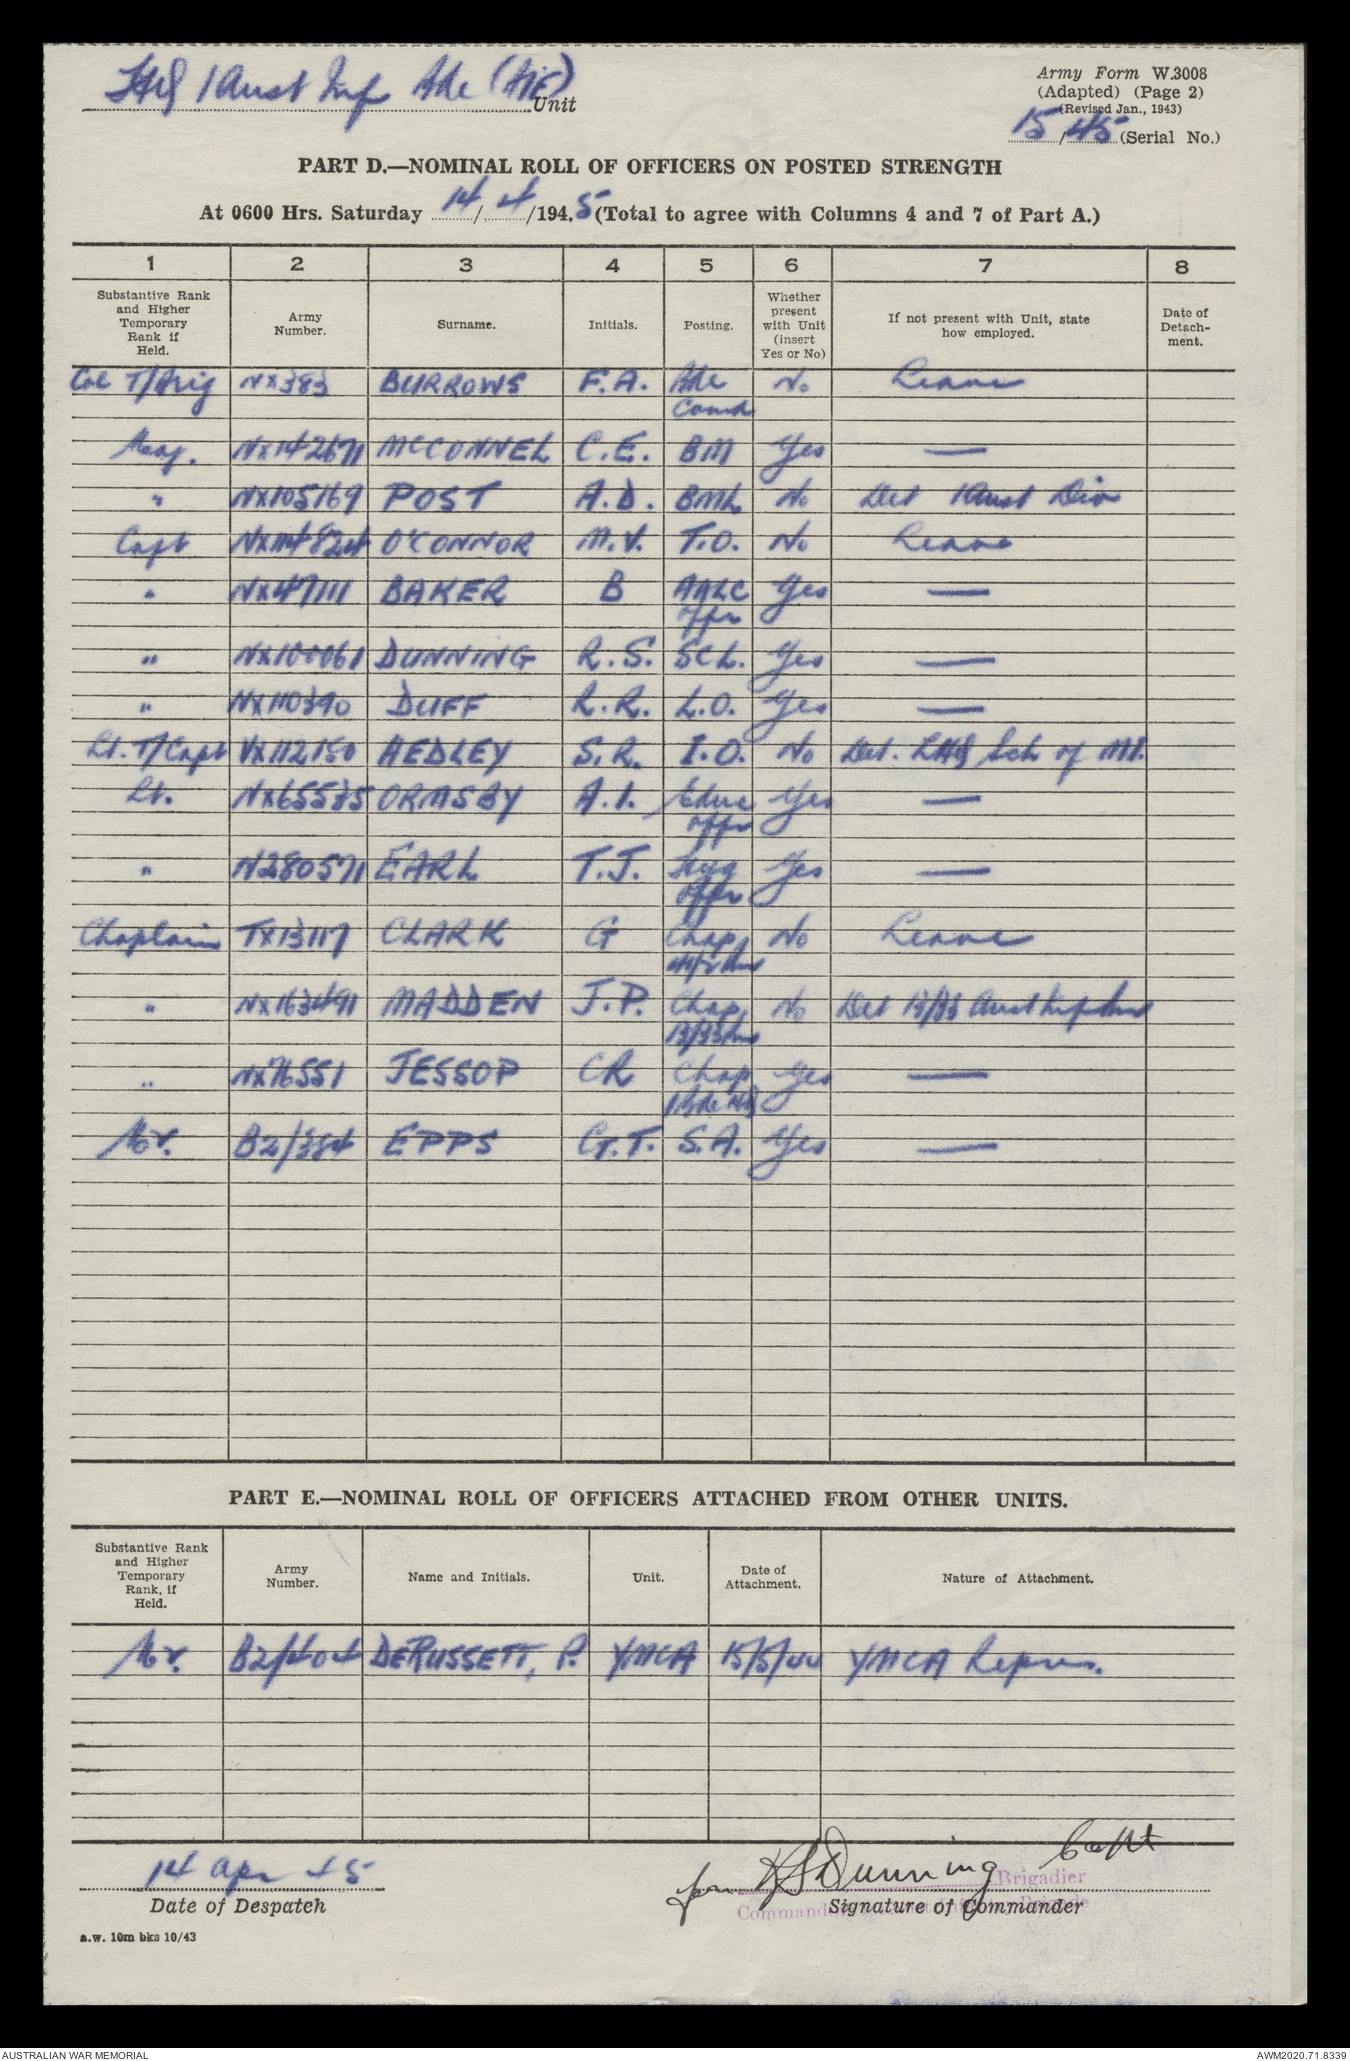 LHQ 1 Aust Inf Bde (AIF) Unit
Army Form W.3008
(Adapted) (Page 2)
(Revised Jan., 1943)
15/45 (Serial No.)
PART D.—NOMINAL ROLL OF OFFICERS ON POSTED STRENGTH
At 0600 Hrs. Saturday 14/4/1945 (Total to agree with Columns 4 and 7 of Part A.)
1 2 3 4 5 6 7 8
Substantive Rank and Higher Temporary Rank if Held. Army Number. Surname. Initials. Posting. Whether present with Unit (insert Yes or No) If not present with Unit, state how employed. Date of Detach-ment.
Col T/Brig NX383 BURROWS F.A. Bde No Leave
Comd
Maj. NX142671 MCCONNEL C.E. BM Yes —
" NX105169 POST A.D. BML No Det 1 Aust Div
Capt NX114824 O'CONNOR M.V. T.O. No Leave
" NX47111 BAKER B AALC Yes —
offr
" NX100061 DUNNING R.S. SCL. Yes —
" NX110390 DUFF R.R. L.O. Yes —
Lt. T/Capt VX112180 HEDLEY S.R. I.O. No Det. LHQ Sch of MI.
Lt. NX65535 ORMSBY A.I. Educ Yes —
offr
" N280571 EARL T.J. Hyg Yes —
offr
Chaplain TX13117 CLARK G Chap, No Leave
41/2 Bn
" NX163491 MADDEN J.P. Chap, No Det 13/33 Aust Inf Bn
13/33 Bn
" NX76551 JESSOP CR Chap Yes —
1 Bde HQ
Mr. B2/384 EPPS G.T. S.A. Yes —
PART E.—NOMINAL ROLL OF OFFICERS ATTACHED FROM OTHER UNITS.
Substantive Rank and Higher Temporary Rank, if Held. Army Number. Name and Initials. Unit. Date of Attachment. Nature of Attachment.
Mr. B2/404 DERUSSETT, P. YMCA 15/5/44 YMCA Repres.
14 Apr 45
for RSDunning Capt
Brigadier
Date of Despatch
Signature of Commander
a.w. 10m bks 10/43
AUSTRALIAN WAR MEMORIAL
AWM2020.71.8339